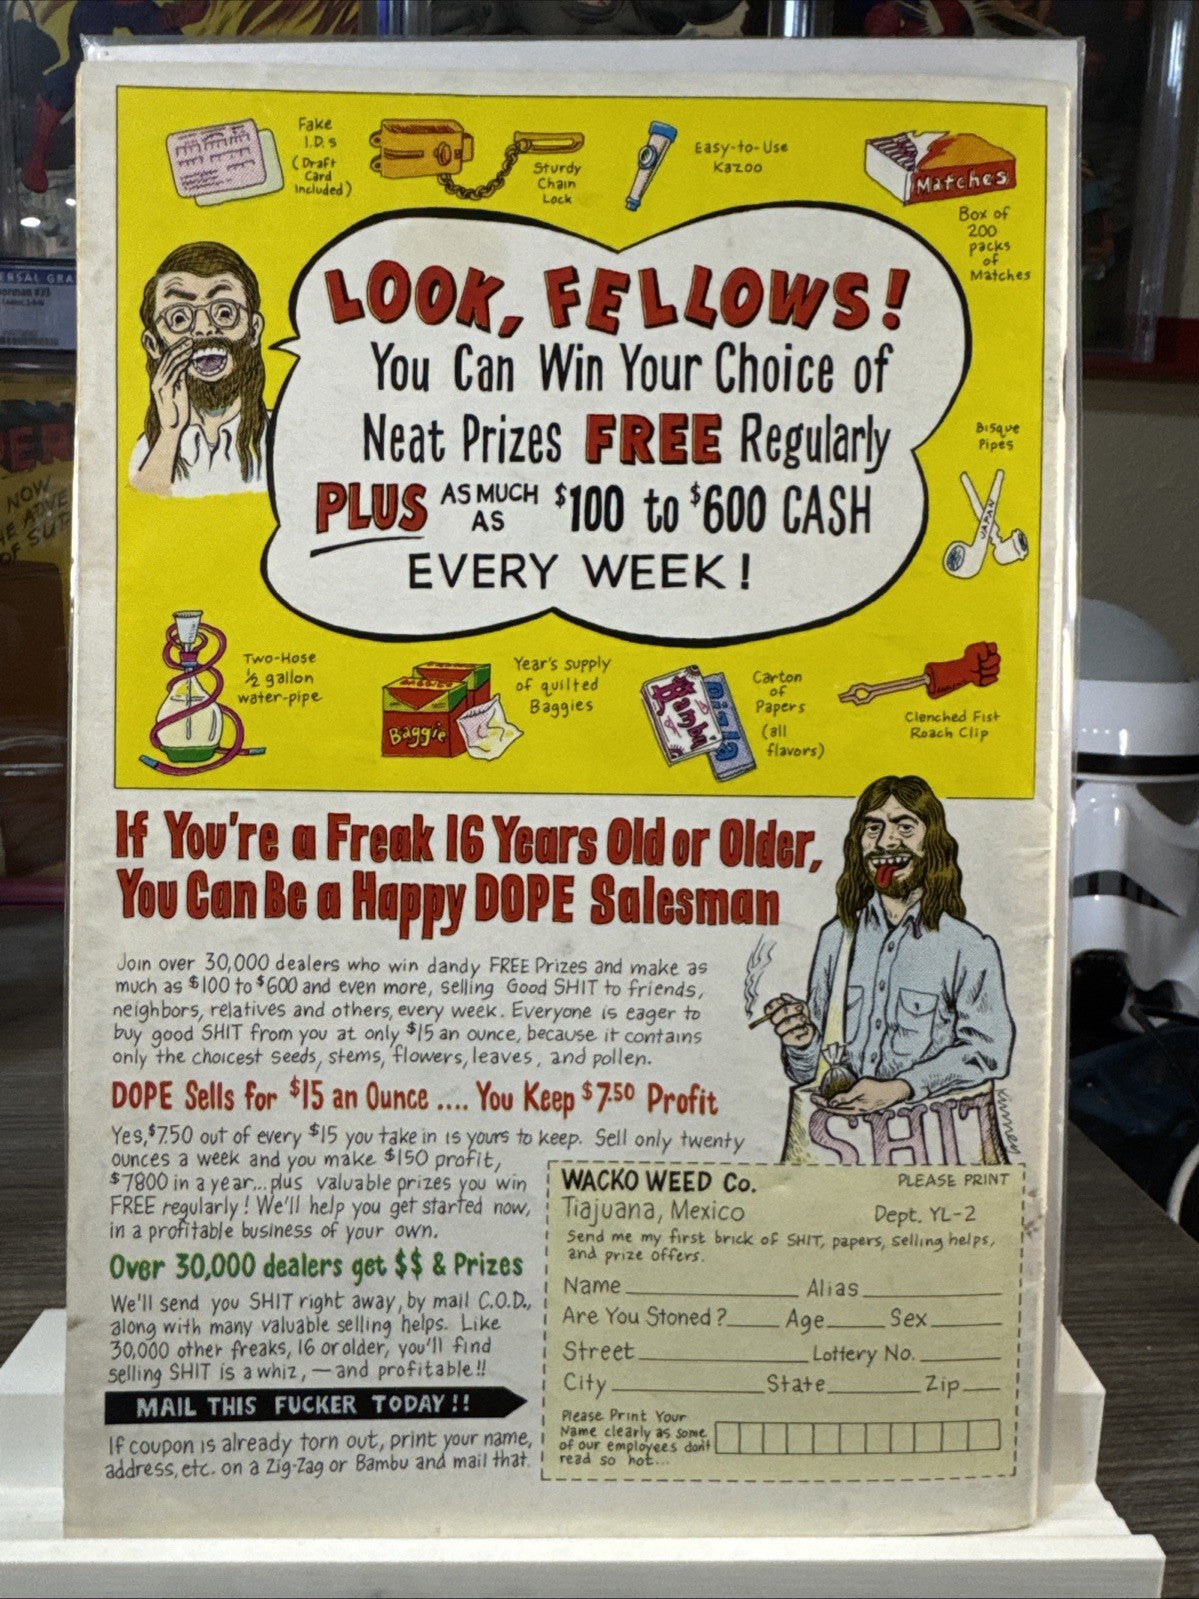 Fake
I.D.s
(Draft
Card
included)
Sturdy
Chain
Lock
Easy-to-Use
Kazoo
Matches
Box of
200
packs
of
Matches
LOOK, FELLOWS!
You Can Win Your Choice of
Neat Prizes FREE Regularly
PLUS AS MUCH AS $100 to $600 CASH
EVERY WEEK!
Bisque
Pipes
JAPAN
Two-Hose
½ gallon
water-pipe
Baggie
Year's supply
of quilted
Baggies
Bambu
Carton
of
Papers
(all
flavors)
Clenched Fist
Roach Clip
If You're a Freak 16 Years Old or Older,
You Can Be a Happy DOPE Salesman
Join over 30,000 dealers who win dandy FREE Prizes and make as
much as $100 to $600 and even more, selling Good SHIT to friends,
neighbors, relatives and others, every week. Everyone is eager to
buy good SHIT from you at only $15 an ounce, because it contains
only the choicest seeds, stems, flowers, leaves, and pollen.
DOPE Sells for $15 an Ounce .... You Keep $7.50 Profit
Yes, $7.50 out of every $15 you take in is yours to keep. Sell only twenty
ounces a week and you make $150 profit,
$7800 in a year...plus valuable prizes you win
FREE regularly! We'll help you get started now,
in a profitable business of your own.
Over 30,000 dealers get $$ & Prizes
We'll send you SHIT right away, by mail C.O.D.,
along with many valuable selling helps. Like
30,000 other freaks, 16 or older, you'll find
selling SHIT is a whiz, — and profitable!!
MAIL THIS FUCKER TODAY!!
If coupon is already torn out, print your name,
address, etc. on a Zig-Zag or Bambu and mail that.
SHIT
WACKO WEED Co. PLEASE PRINT
Tiajuana, Mexico Dept. YL-2
Send me my first brick of SHIT, papers, selling helps,
and prize offers.
Name Alias
Are You Stoned? Age Sex
Street Lottery No.
City State Zip
Please Print Your
Name clearly as some
of our employees don't
read so hot...
NOW